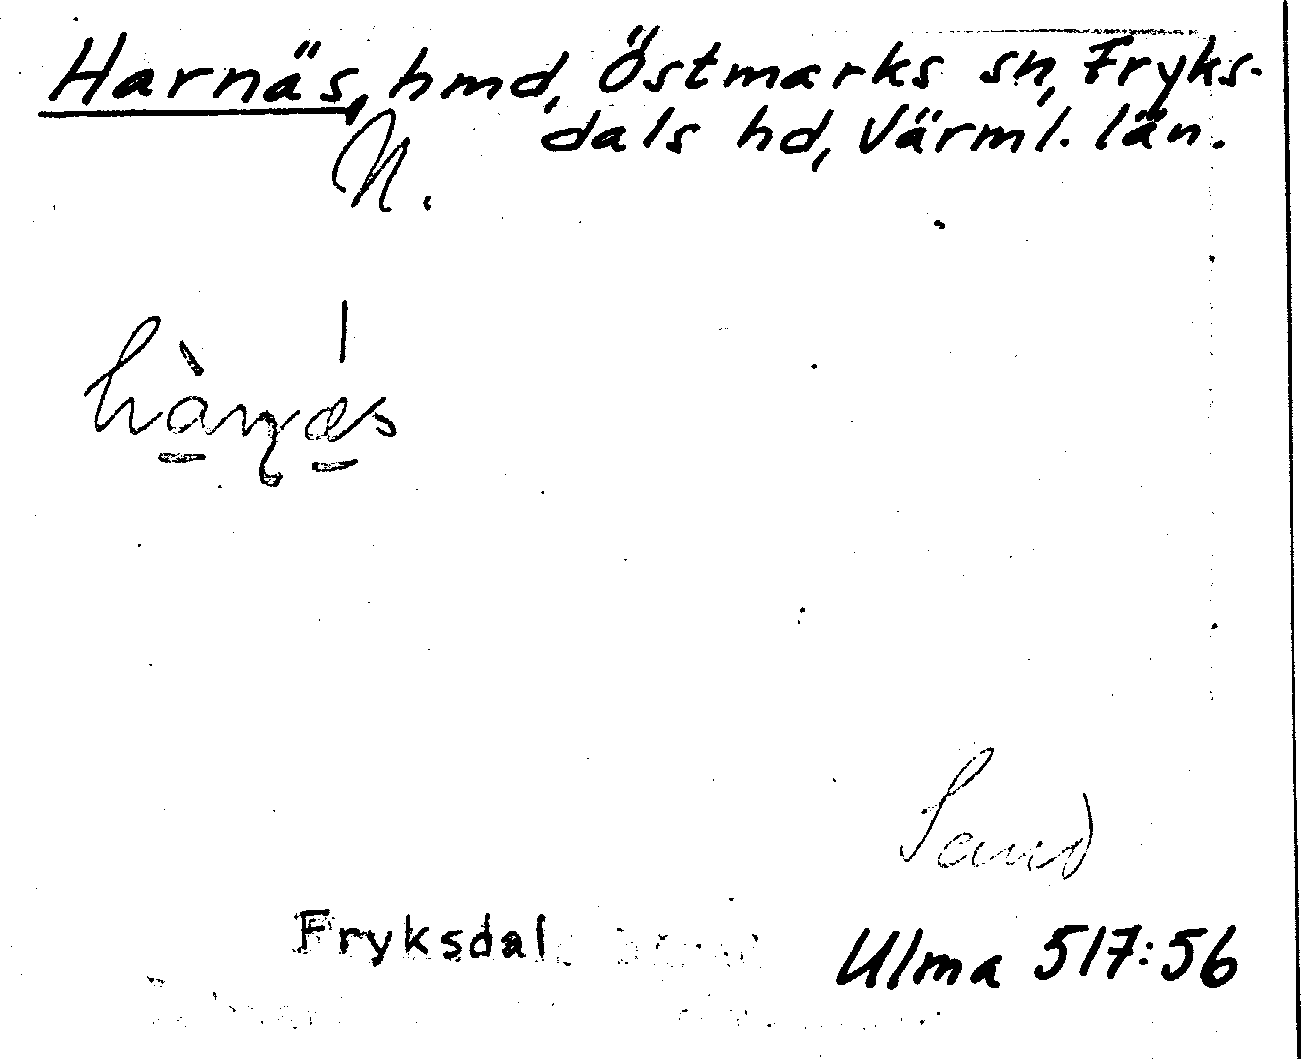 Harnäs, hmd, Östmarks sn, Fryks-
N. dals hd, Värml. län.
hàɳæ̀s
Sand
Fryksdal
Ulma 517:56